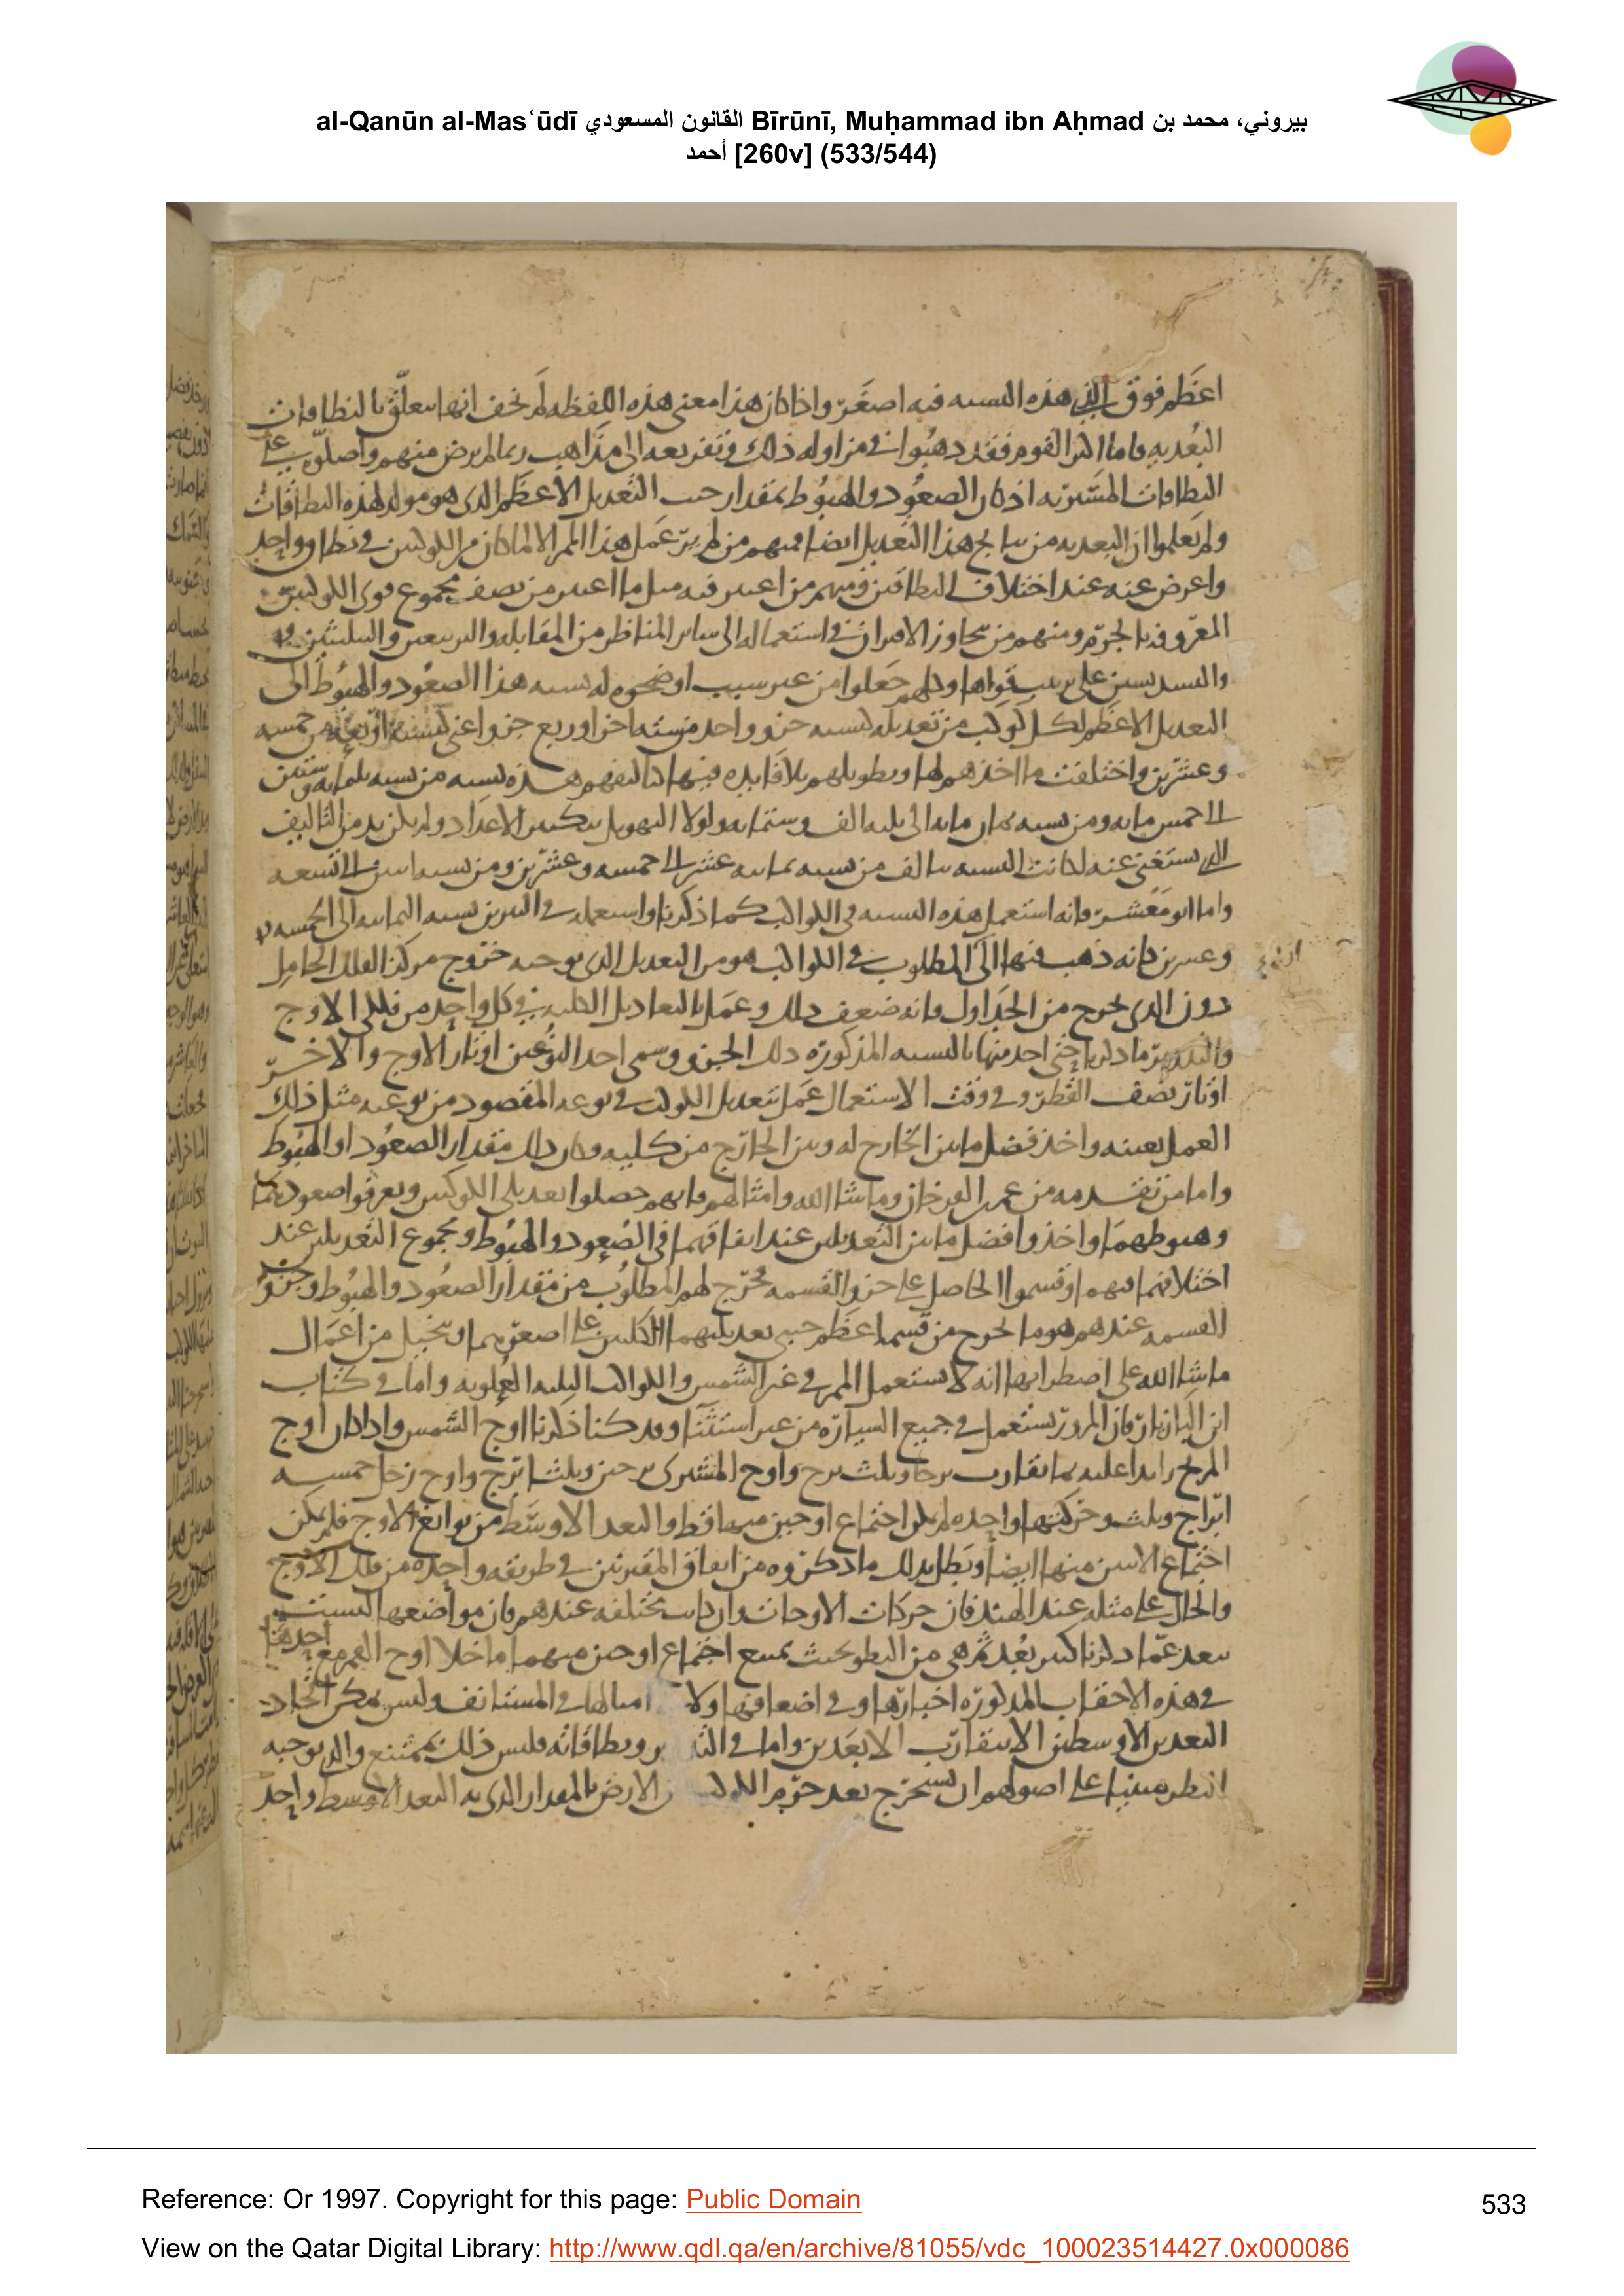 al-Qanūn al-Mas‘ūdī القانون المسعودي Bīrūnī, Muḥammad ibn Aḥmad بيروني، محمد بن
أحمد [260v] (533/544)
اعظم فوق التي هذه النسبه فيه اصغر واذا كان هذا معنى هذه اللفظه لم يخف انها متعلق بالنطاقات
البعديه فاما اكثر القوم فقد ذهبوا في مزاوله ذلك وتفريعه الى مذاهب ربما لم يرض منهم واصلوب على
النطاقات المسيريه اذ كان الصعود والهبوط بمقدار حسب التعديل الاعظم الذى هو مولد لهذه النطاقات
ولم يعلموا ان البعديه من نتايج هذا التعديل ايضا فمنهم من لم ير عمل هذا الممر الا لما كان من الكوكبين في نطاق واحد
واعرض عنه عند اختلاف النطاقين ومنهم من اعتبر فيه مثل ما اعتبر من نصف مجموع قوى الكوكبين
المعروفه بالجرم ومنهم من تجاوز الاقتران في استعماله الى ساير المناظر من المقابله والتربيعين والتثليثين
والتسديسين على ترتيب قواها وكلهم جعلوا من غير سبب اوضحوه له نسبه هذا الصعود والهبوط الى
التعديل الاعظم لكل كوكب من تعديله كنسبه جزو واحد من سته اجزا وربع جزو اعنى كنسبه اربعه من خمسه
وعشرين واختلفت ماخذهم لها وتطويلهم بلا فايده فيها
الى خمس مايه ومن نسبه ثمان مايه الى ثلثه الف وستمايه ولولا التهويل بتكثير الاعداد ولم يكن بد من التاليف
الذى يستغنى عنه لكانت النسبه تتالف من نسبه ثمانيه عشر الى خمسه وعشرين ومن نسبه اثنين الى التسعه
واما ابو معشر فانه استعمل هذه النسبه في الكواكب كما ذكرنا واستعمله في النيرين نسبه الثمانيه الى الخمسه
وعشرين فانه ذهب فيها الى المطلوب في الكواكب هو من التعديل الذى يوجبه خروج مركز الفلك الحامل
دون الذى يخرج من الجداول فانه ضعف ذلك وعمل بالتعاديل الكليه في كل واحد من فلكى الاوج
والتدوير ما ذكرنا حتى احد منها بالنسبه المذكوره ذلك الجزو وسمى احد النوعين اوتار الاوج والاخر
اوتار نصف القطر وفي وقت الاستعمال عمل بتعديل الكوكب في نوعه المقصود من نوعيه مثل ذلك
العمل بعينه واخذ فضل ما بين الخارج له وبين الخارج من كليه وكان ذلك مقدار الصعود او الهبوط
واما من تقدمه من عمر بن الفرخان وما شا الله وامثالهم فانهم حصلوا تعديلى الكوكبين وتعرفوا صعودهما
وهبوطهما واخذوا فضل ما بين التعديلين عند اتفاقهما في الصعود والهبوط ومجموع التعديلين عند
اختلافهما فيهما وقسموا الحاصل على جزو القسمه فخرج لهم المطلوب من مقدار الصعود والهبوط وجزو
القسمه عندهم هو ما يخرج من قسمه اعظم جيبى تعديليهما الكليين على اصغرهما وتخيل من اعمال
ما شا الله على اضطرابها انه لا يستعمل الممر في غير الشمس والكواكب الثلثه العلويه واما في كتاب
ابن البازيار فان المرور يستعمل في جميع السياره من غير استثنا وقد كنا ذكرنا اوج الشمس واذا كان اوج
المريخ زايدا عليه بما يقارب برجا وثلث برج واوج المشترى برجين وثلثا برج واوج زحل خمسه
ابراج وثلث وحركتها واحده لم يكن اجتماع اوجين منها قط والبعد الاوسط من توابع الاوج فلم يمكن
اجتماع الاثنين منها ايضا وبطل بذلك ما ذكروه من اتفاق المقترنين في طريقه واحده من فلك الاوج
والحال على مثله عند الهند فان حركات الاوجات وان كانت مختلفه عندهم فان مواضعها ليست
تبعد عما ذكرنا كبير بعد ثم هى من البطو بحيث يمتنع اجتماع اوجين منهما ما خلا اوج القمر مع احدها
في هذه الاحقاب المذكوره اخبارها وفي اضعافها ولا امثالها في المستانف وليس يمكن اتحاد
البعدين الاوسطين الا بتقارب الابعدين واما في التدوير ونطاقاته فليس ذلك بممتنع والذى يوجبه
النظر مبنيا على اصولهم ان يستخرج بعد جرم الكوكب عن الارض بالمقدار الذى به البعد الاوسط واحد
Reference: Or 1997. Copyright for this page: Public Domain
533
View on the Qatar Digital Library: http://www.qdl.qa/en/archive/81055/vdc_100023514427.0x000086